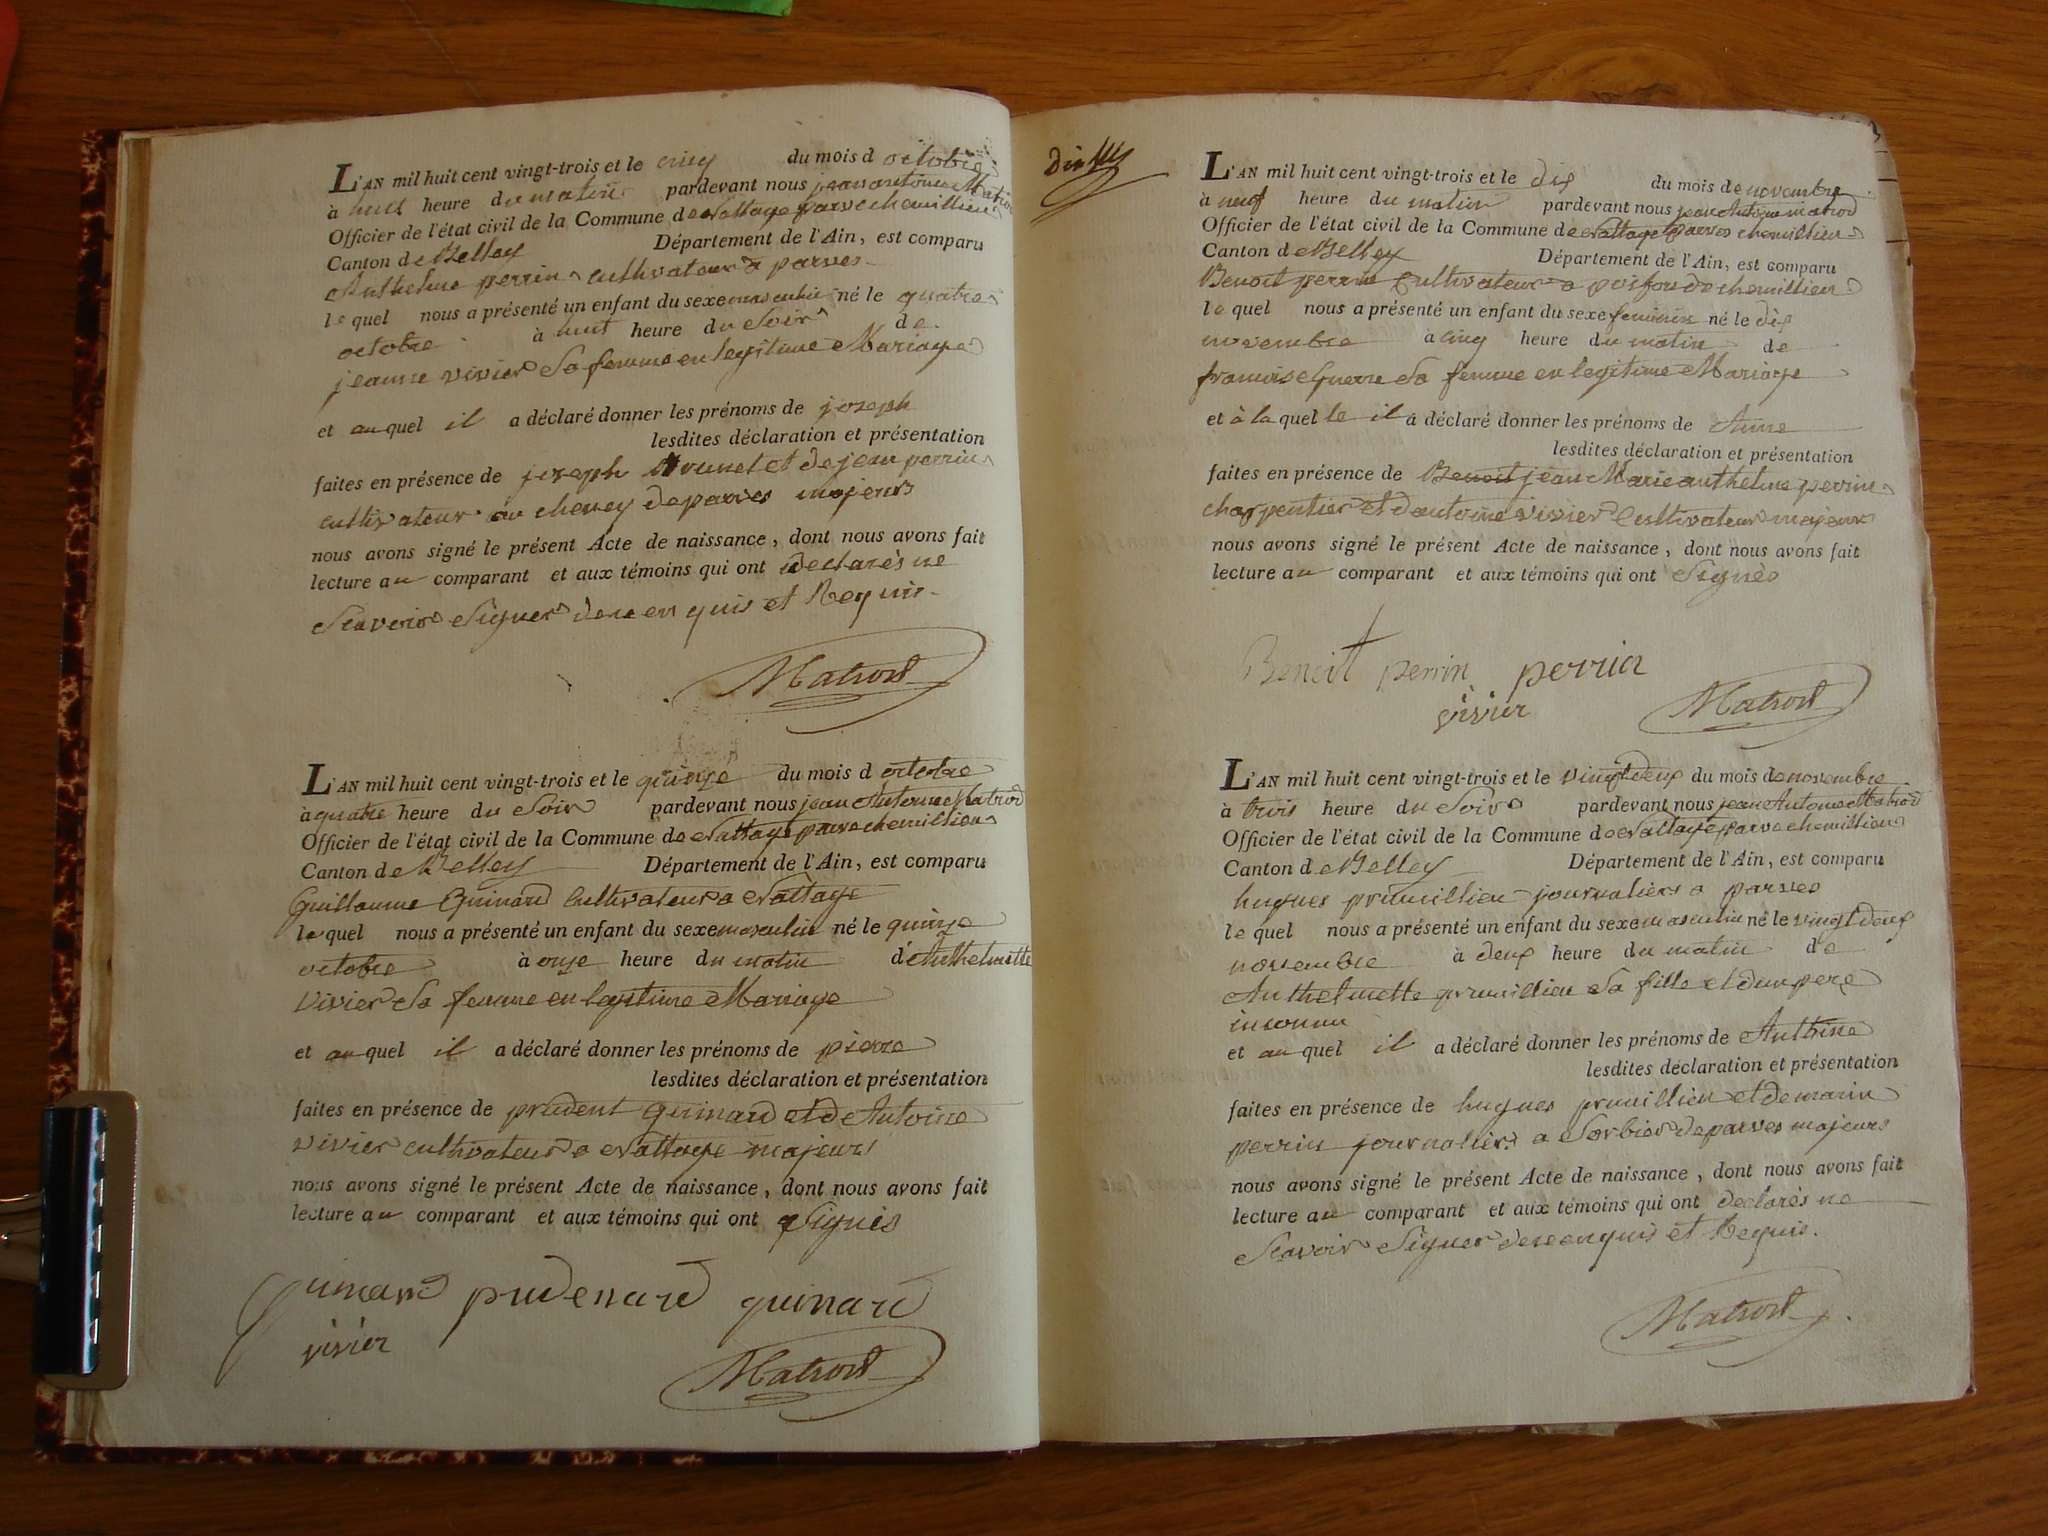 L'AN mil huit cent vingt-trois et le cinq du mois d octobre
à huit heure du matin pardevant nous jean antoine Matrod
Officier de l'état civil de la Commune de Nattage parve chemillieu
Canton de Belley Département de l'Ain, est comparu
Anthelme perrin cultivateur a parves
le quel nous a présenté un enfant du sexe masculin né le quatre
octobre à huit heure du Soir de
jeanne vivier Sa femme en legitime Mariage
et au quel il a déclaré donner les prénoms de joseph
lesdites déclaration et présentation
faites en présence de joseph et de jean perrin
cultivateur au de parves majeurs
nous avons signé le présent Acte de naissance, dont nous avons fait
lecture au comparant et aux témoins qui ont declarés ne
Scavoir Signer de ce en quis et Requis
Matrod
L'AN mil huit cent vingt-trois et le quinze du mois d octobre
à quatre heure du Soir pardevant nous jean Antoine Matrod
Officier de l'état civil de la Commune de Nattage parve chemillieu
Canton de Belley Département de l'Ain, est comparu
Guillaume Guinard Cultivateur a Nattage
le quel nous a présenté un enfant du sexe masculin né le quinze
octobre à onze heure du matin d'Anthelmette
Vivier Sa femme en legitime Mariage
et au quel il a déclaré donner les prénoms de pierre
lesdites déclaration et présentation
faites en présence de prudent guinard et de Antoine
vivier cultivateur a Nattage majeurs
nous avons signé le présent Acte de naissance, dont nous avons fait
lecture au comparant et aux témoins qui ont Signés
guinard guinard
vivier
Matrod
L'AN mil huit cent vingt-trois et le dix du mois de novembre
à neuf heure du matin pardevant nous jean Antoine matrod
Officier de l'état civil de la Commune de Nattage parves chemillieu
Canton de Belley Département de l'Ain, est comparu
Benoit perrin Cultivateur a de chemillieu
le quel nous a présenté un enfant du sexe feminin né le dix
novembre à cinq heure du matin de
francoise Guerre Sa femme en legitime Mariage
et à la quelle il a déclaré donner les prénoms de Anne
lesdites déclaration et présentation
faites en présence de Benoit jean Marie anthelme perrin
charpentier et d antoine vivier Cultivateur majeurs
nous avons signé le présent Acte de naissance, dont nous avons fait
lecture au comparant et aux témoins qui ont Signés
Benoit perrin perrin
vivier Matrod
L'AN mil huit cent vingt-trois et le vingt deux du mois de novembre
à trois heure du Soir pardevant nous jean Antoine Matrod
Officier de l'état civil de la Commune de Nattage parve chemillieu
Canton de Belley Département de l'Ain, est comparu
hugues journalier a parves
le quel nous a présenté un enfant du sexe masculin né le vingt deux
novembre à deux heure du matin de
Anthelmette Sa fille et d un pere
inconnu
et au quel il a déclaré donner les prénoms de
lesdites déclaration et présentation
faites en présence de hugues et de marin
perrin journalier a Sorbier de parves majeurs
nous avons signé le présent Acte de naissance, dont nous avons fait
lecture au comparant et aux témoins qui ont declarés ne
Scavoir Signer de ce enquis et Requis.
Matrod